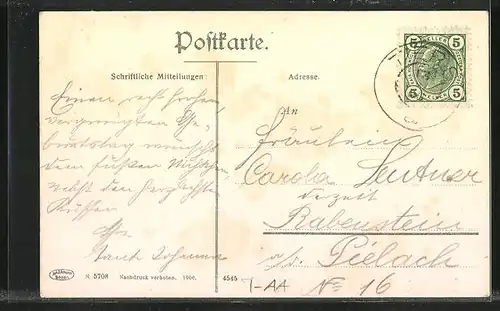 Postkarte.
Schriftliche Mitteilungen:
Einen recht frohen
vergnügten Ge-
burtstag wünscht
dem süßen
nebst den herzlichsten
Küssen
Adresse.
An
Fräulein
Carola Leutner
dezeit
Rabenstein
a/d. Pielach
N° 16
5 HELLER 5
5 5
M 5708 Nachdruck verboten. 1906. 4545
T-AA